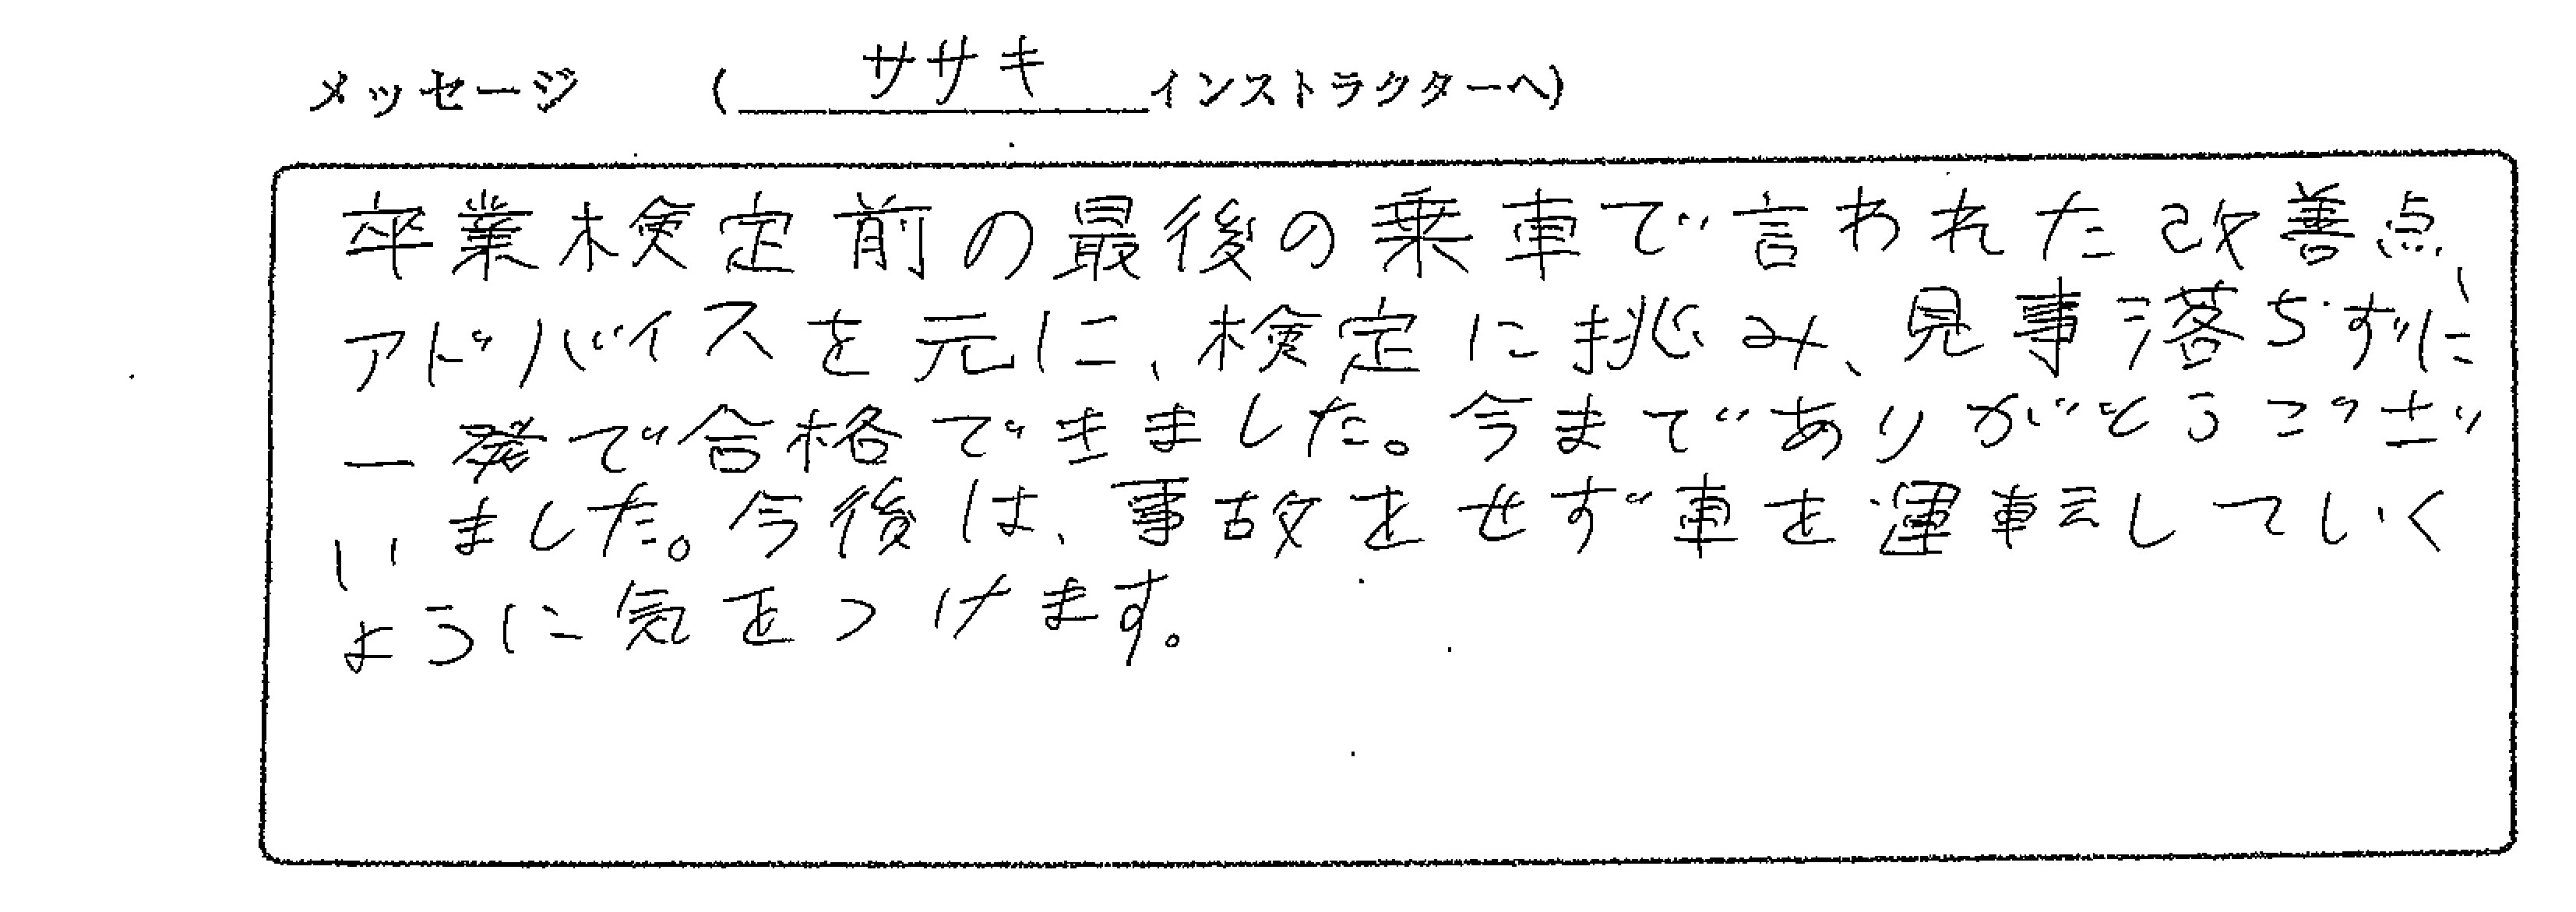 メッセージ (ササキインストラクターへ)
卒業検定前の最後の乗車で言われた改善点、
アドバイスを元に、検定に挑み、見事落ちずに
一発で合格できました。今までありがとうござ
いました。今後は、事故をせず車を運転していく
ように気をつけます。